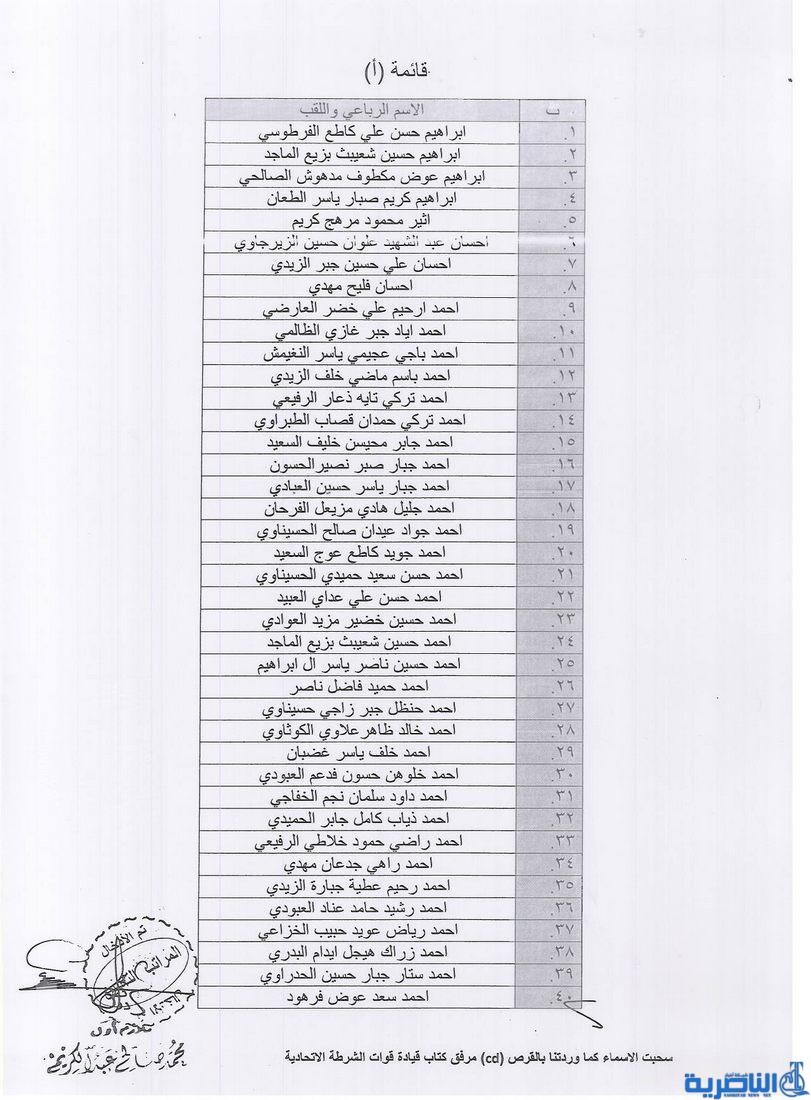 قائمة (أ)
ت الاسم الرباعي واللقب
١. ابراهيم حسن علي كاطع الفرطوسي
٢. ابراهيم حسين شعيبث بزيع الماجد
٣. ابراهيم عوض مكطوف مدهوش الصالحي
٤. ابراهيم كريم صبار ياسر الطعان
٥. اثير محمود مرهج كريم
٦. احسان عبد الشهيد علوان حسين الزيرجاوي
٧. احسان علي حسين جبر الزيدي
٨. احسان فليح مهدي
٩. احمد ارحيم علي خضر العارضي
١٠. احمد اياد جبر غازي الظالمي
١١. احمد باجي عجيمي ياسر النغيمش
١٢. احمد باسم ماضي خلف الزيدي
١٣. احمد تركي تايه ذعار الرفيعي
١٤. احمد تركي حمدان قصاب الطبراوي
١٥. احمد جابر محيسن خليف السعيد
١٦. احمد جبار صبر نصيرالحسون
١٧. احمد جبار ياسر حسين العبادي
١٨. احمد جليل هادي مزيعل الفرحان
١٩. احمد جواد عيدان صالح الحسيناوي
٢٠. احمد جويد كاطع عوج السعيد
٢١. احمد حسن سعيد حميدي الحسيناوي
٢٢. احمد حسن علي عداي العبيد
٢٣. احمد حسين خضير مزيد العوادي
٢٤. احمد حسين شعيبث بزيع الماجد
٢٥. احمد حسين ناصر ياسر ال ابراهيم
٢٦. احمد حميد فاضل ناصر
٢٧. احمد حنظل جبر زاجي حسيناوي
٢٨. احمد خالد ظاهرعلاوي الكوثاوي
٢٩. احمد خلف ياسر غضبان
٣٠. احمد خلوهن حسون فدعم العبودي
٣١. احمد داود سلمان نجم الخفاجي
٣٢. احمد ذياب كامل جابر الحميدي
٣٣. احمد راضي حمود خلاطي الرفيعي
٣٤. احمد راهي جدعان مهدي
٣٥. احمد رحيم عطية جبارة الزيدي
٣٦. احمد رشيد حامد عناد العبودي
٣٧. احمد رياض عويد حبيب الخزاعي
٣٨. احمد زراك هيجل ايدام البدري
٣٩. احمد ستار جبار حسين الحدراوي
٤٠. احمد سعد عوض فرهود
تم الأدخال
محمد صالح عبد الكريم
سحبت الاسماء كما وردتنا بالقرص (cd) مرفق كتاب قيادة قوات الشرطة الاتحادية
شبكة أخبار
الناصرية
NASIRIYAH NEWS NET